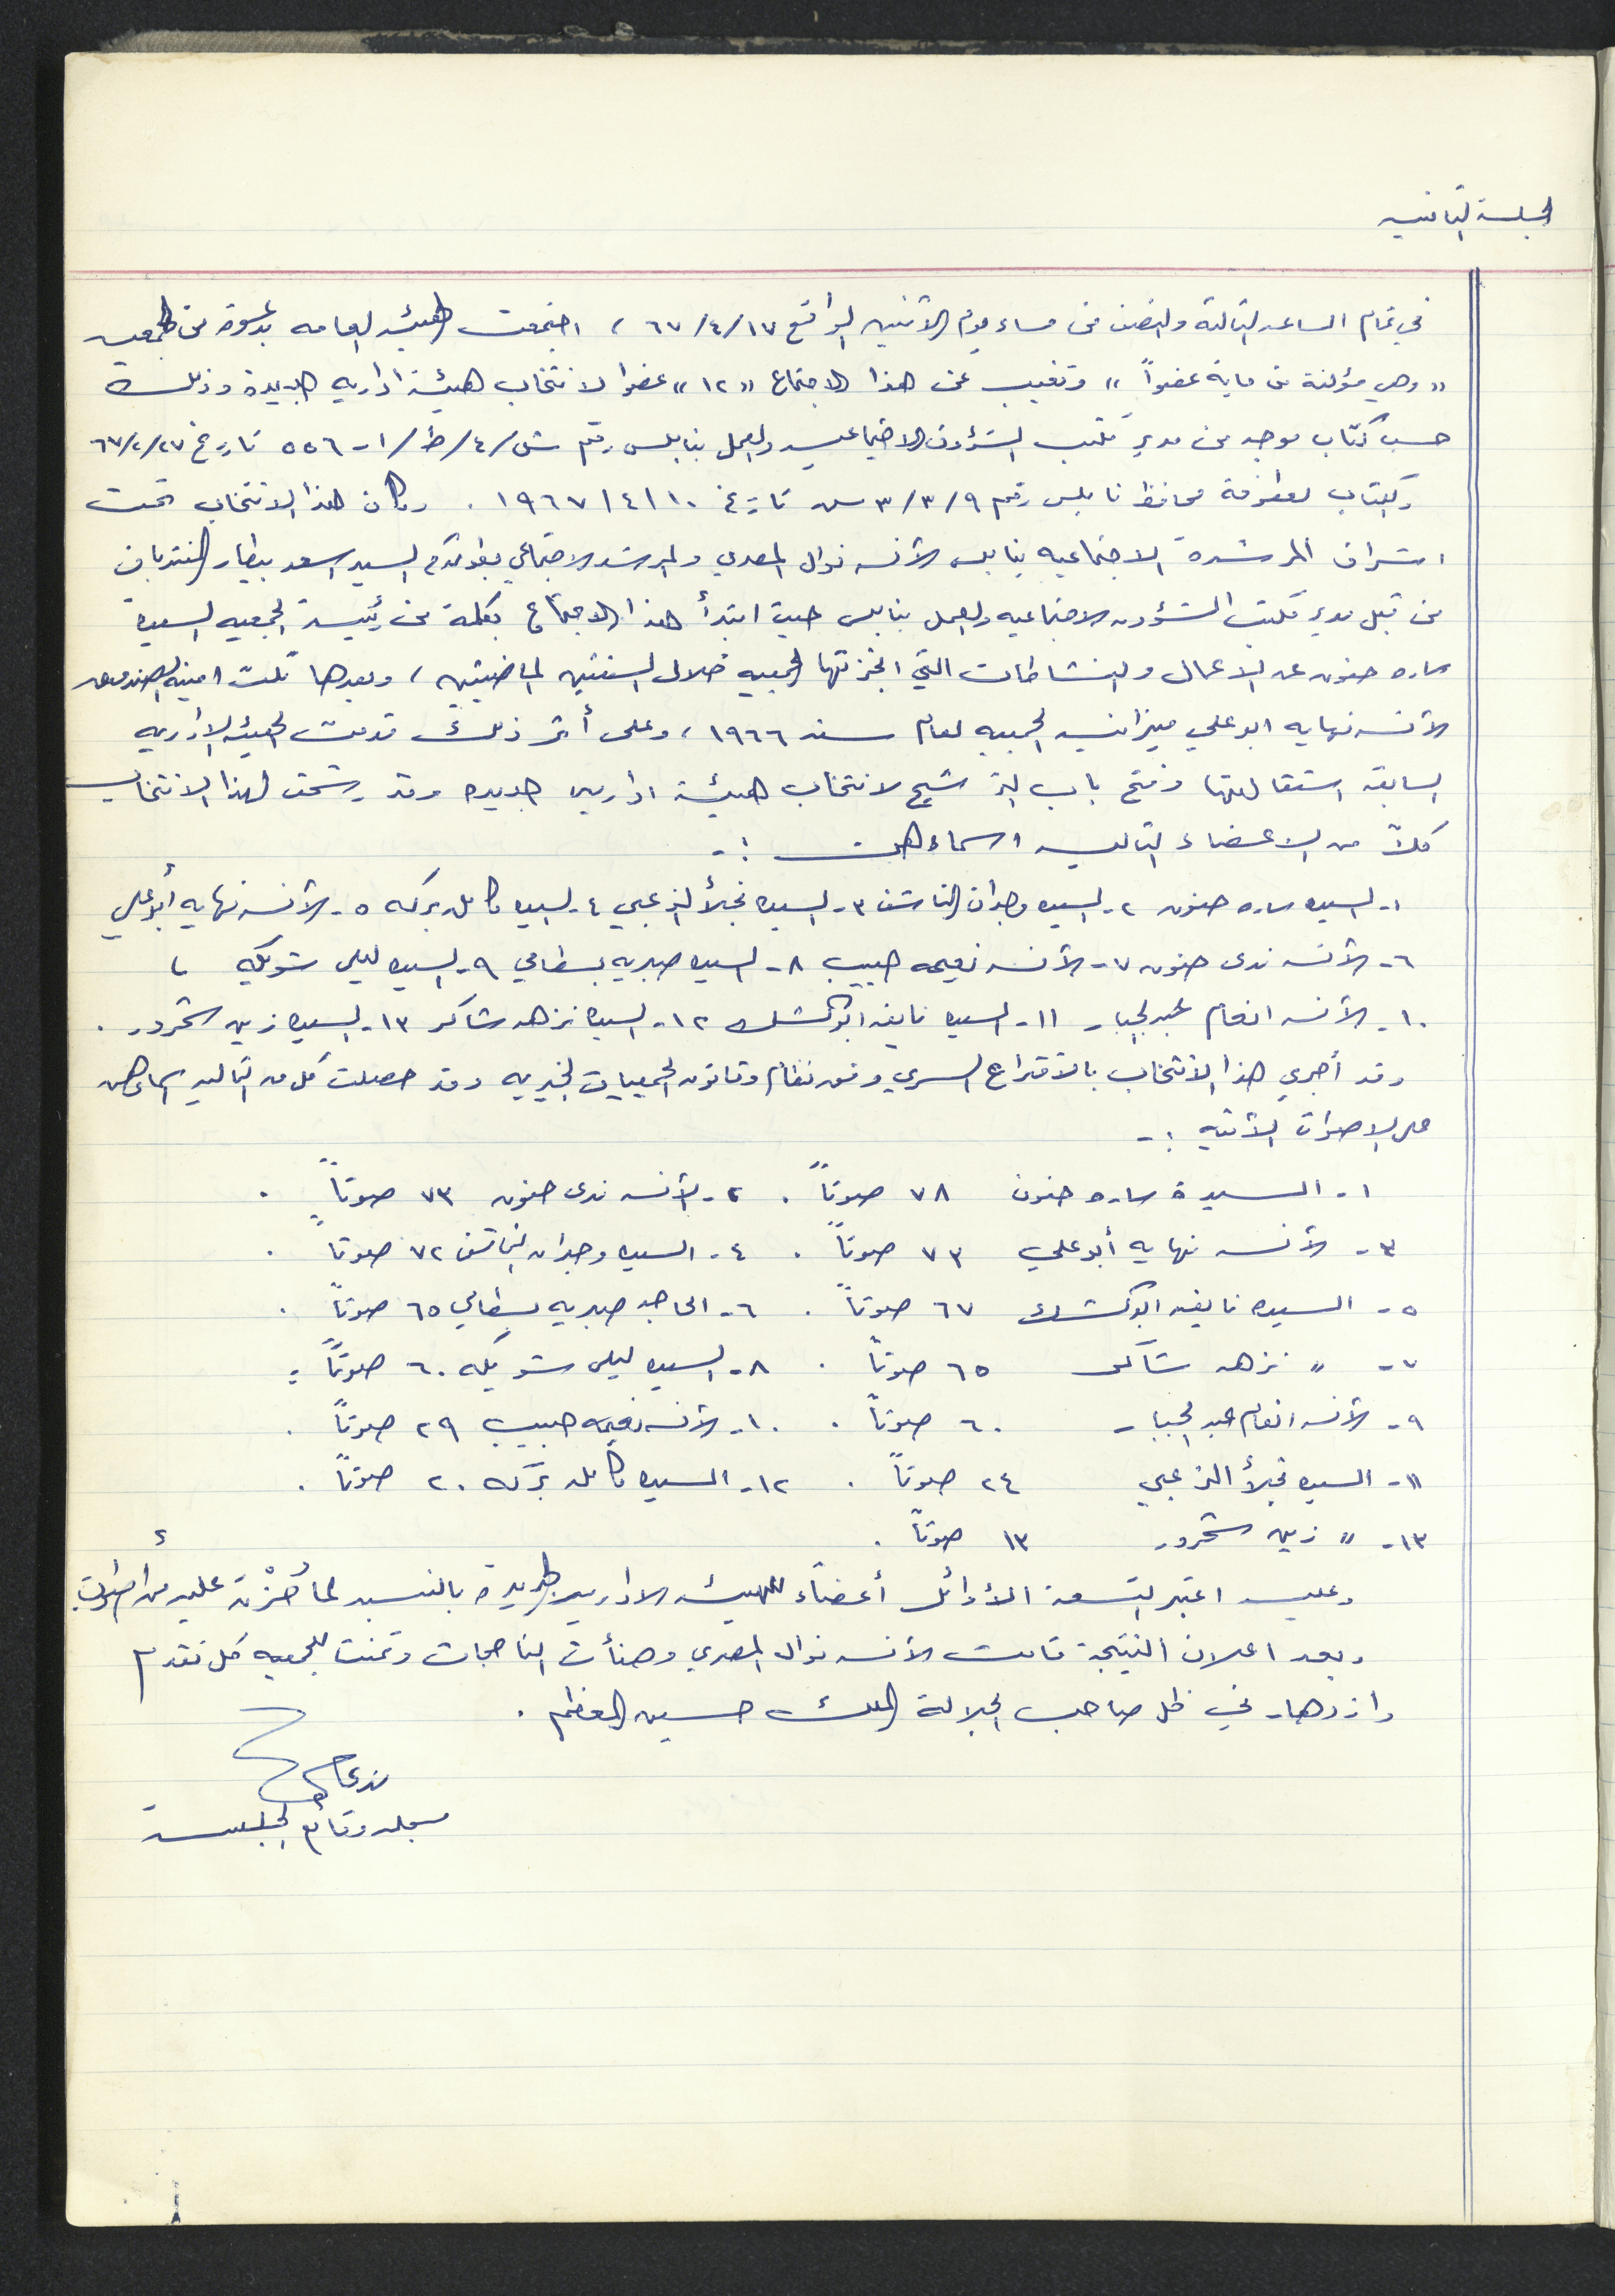 الجلسة الثانيه
في تمام الساعه الثالثة والنصف من مساء يوم الاثنين الواقع ١٧/٤/٦٧ ، اجتمعت الهيئه العامه بدعوة من الجمعيه
" وهي مؤلفة من ماية عضواً " وتغيب عن هذا الاجتماع " ١٢ " عضوا لانتخاب هيئة اداريه جديدة وذلك
حسب كتاب موجه من مدير مكتب الشؤون الاجتماعيه والعمل بنابلس رقم ش/٤/ط/١-٥٥٦ تاريخ ٢٧/٢/٦٧
وكتاب لعطوفة محافظ نابلس رقم ٣/٣/٩ تاريخ ١٠/٤/١٩٦٧ . وكان هذا الانتخاب تحت
اشراف المرشدة الاجتماعيه بنابلس الآنسه نوال المصري والمرشد الاجتماعي السيد اسعد بيطار المنتدبان
من قبل مدير مكتب الشؤون الاجتماعيه والعمل بنابلس حيث ابتدأ هذا الاجتماع بكلمة من رئيسة الجمعيه السيدة
ساره حنون عن الاعمال والنشاطات التي انجزتها الجمعيه خلال السنتين الماضيتين ، وبعدها تلت امينة الصندوق
الآنسه نهايه ابو علي ميزانيه الجمعيه لعام سنه ١٩٦٦ ، وعلى أثر ذلك قدمت الهيئه الاداريه
السابقه استقالتها وفتح باب الترشيح لانتخاب هيئة اداريه جديده وقد رشحت لهذا الانتخاب
كلاً من الاعضاء التاليه اسماءهن :-
١- السيده ساره حنون ٢- السيده وجدان الناشف ٣- السيده نجلأ الزعبي ٤- السيده كامله بركه ٥- الآنسه نهايه أبو علي
٦- الآنسه ندى حنون ٧- الآنسه نعيمه حبيب ٨- السيده صبريه بسطامي ٩- السيده ليلى شويكه ،
١٠- الآنسه انعام عبد الجبار ١١- السيده نايفه ابو كشك ١٢- السيده نزهه شاكر ١٣- السيده زين شحرور .
وقد أجري هذا الانتخاب بالاقتراع السري وفق نظام وقانون الجمعيات الخيريه وقد حصلت كل من التاليه اسماءهن
على الاصوات الآتيه :-
١- السيدة ساره حنون ٧٨ صوتاً . ٢- الآنسه ندى حنون ٧٣ صوتاً .
٣- الآنسه نهايه أبو علي ٧٣ صوتاً . ٤- السيده وجدان الناشف ٧٢ صوتاً .
٥- السيده نايفه ابو كشك ٦٧ صوتاً . ٦- الحاجه صبريه بسطامي ٦٥ صوتاً .
٧- " نزهه شاكر ٦٥ صوتاً . ٨- السيده ليلى شويكه ٦٠ صوتاً .
٩- الآنسه انعام عبد الجبار ٦٠ صوتاً . ١٠- الآنسه نعيمه حبيب ٢٩ صوتاً .
١١- السيده نجلأ الزعبي ٢٤ صوتاً . ١٢- السيده كامله بركه ٢٠ صوتاً .
١٣- " زين شحرور ١٣ صوتاً .
وعليه اعتبر التسعة الأوائل أعضاء للهيئه الاداريه الجديدة بالنسبه لما حُزْن عليه من أصوات
وبعد اعلان النتيجة قامت الآنسه نوال المصري وهنأت الناجحات وتمنت للجمعيه كل تقدم
وازدهار في ظل صاحب الجلالة الملك حسين المعظم .
مسجله وقائع الجلسة